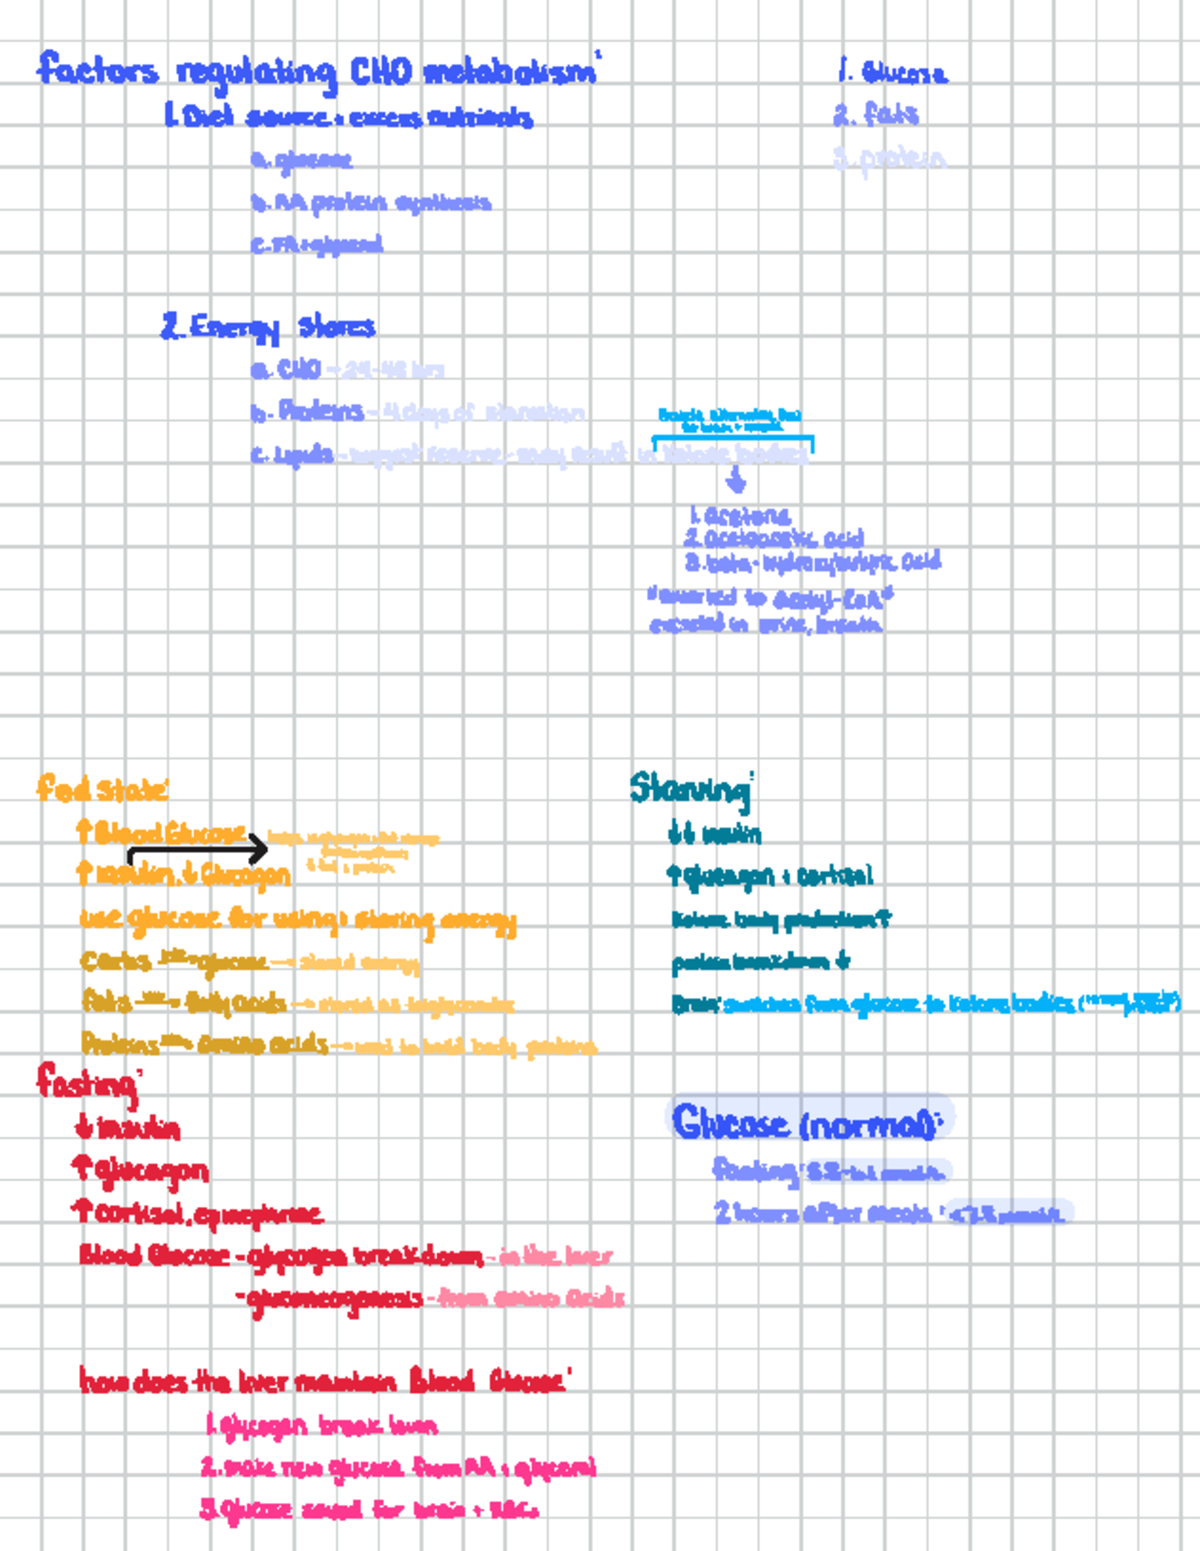 factors regulating CHO metabolism:
1. Diet source + excess nutrients
a. glucose
b. AA protein synthesis
c. FA + glycerol
1. Glucose
2. fats
3. protein
2. Energy stores
a. CHO - 24-48 hrs
b. Proteins - 4 days of starvation
c. Lipids - largest reserve - may result in ketone bodies
1. acetone
2. acetoacetic acid
3. beta-hydroxybutyric acid
to Acetyl-CoA"
excreted in urine, breath
fed state:
↑ Blood Glucose
↑ insulin, ↓ Glucagon
use glucose for using + storing energy
Carbs → glucose → stored energy
fats → fatty acids → stored as triglycerides
Proteins → amino acids → used to build body proteins
Starving:
↓↓ insulin
↑ glucagon + cortisol
Ketone body production ↑
protein breakdown ↓
Brain: switches from glucose to ketone bodies
fasting:
↓ insulin
↑ glucagon
↑ cortisol, epinephrine
Blood Glucose - glycogen breakdown - in the liver
- gluconeogenesis - from amino acids
how does the liver maintain Blood Glucose:
1. glycogen break down
2. make new glucose from AA + glycerol
3. Glucose saved for brain + RBCs
Glucose (normal):
fasting:
2 hours after meals: